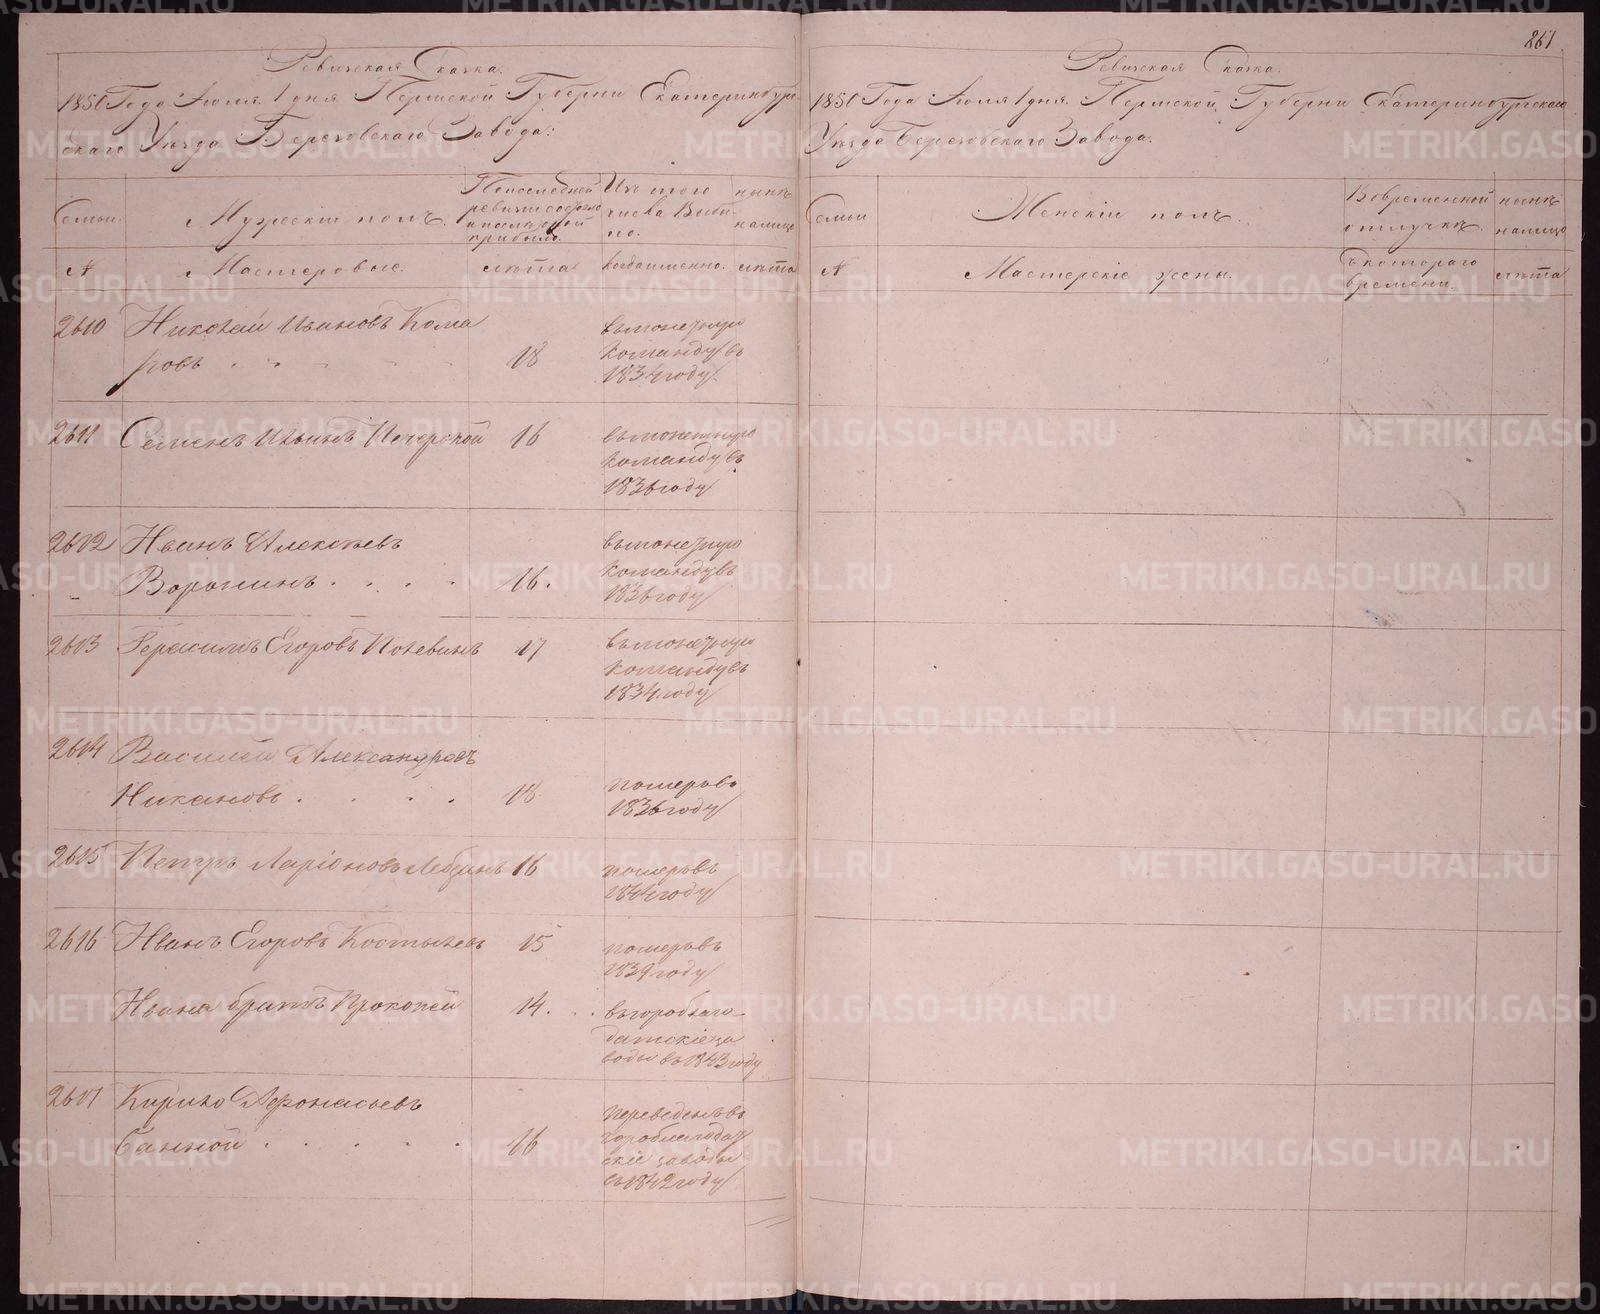 Ревизская Сказка.
1850 Года Июля 1 дня. Пермской Губернии Екатеринбург-
скаго Уезда Березовскаго Завода:
Семьи.
Мужеский полъ.
По последней
ревизии состояло
и после оной
прибыло.
Изъ того
числа выбы-
ло.
ныне
налицо
№
Мастеровые.
лета
когда именно.
лета
2610 Николай Ивановъ Кома
ровъ 18
въ монетную
команду въ
1834 году
2611 Семенъ Ильинъ Печерской 16
въ монетную
команду въ
1836 году
2612 Иванъ Алексеевъ
Воронинъ 16.
въ монетную
команду въ
1836 году
2613 Герасимъ Егоровъ 17
въ монетную
команду въ
1834 году
2614 Василей Александровъ
Никановъ 18
померъ въ
1836 году
2615 Петръ Ларіоновъ 16
померъ въ
1844 году
2616 Иванъ Егоровъ Костылевъ 15
померъ въ
1839 году
Ивана братъ Прокопей 14.
въ горобlаго-
датскіе за
воды въ 1843 году
2617 Кирило Афонасьевъ
Банной 16
переведенъ въ
гороблагодат
скіе заводы
въ 1842 году
861
Ревизская Сказка.
1850 Года Июля 1 дня. Пермской Губернии Екатеринбургскаго
Уезда Березовскаго Завода.
Семьи
Женскій полъ.
Во временной
отлучке.
ныне
налицо
№
Мастерскіе жены.
Съ котораго
времени.
лета
METRIKI.GASO-URAL.RU